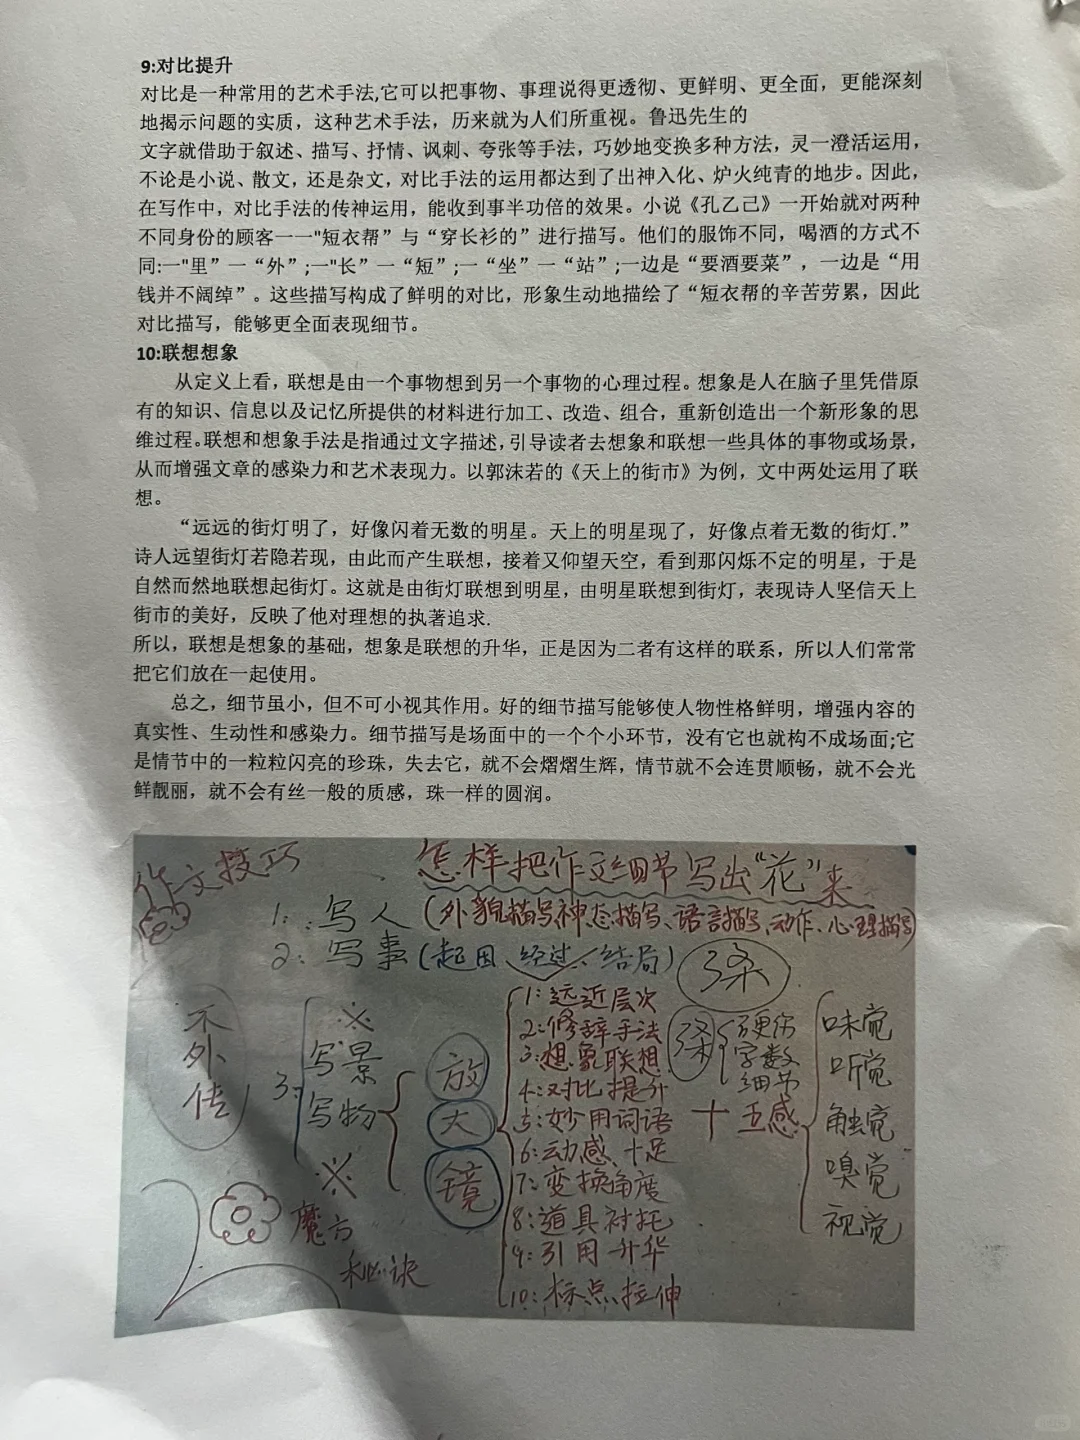 9:对比提升
对比是一种常用的艺术手法,它可以把事物、事理说得更透彻、更鲜明、更全面，更能深刻
地揭示问题的实质，这种艺术手法，历来就为人们所重视。鲁迅先生的
文字就借助于叙述、描写、抒情、讽刺、夸张等手法，巧妙地变换多种方法，灵一澄活运用，
不论是小说、散文，还是杂文，对比手法的运用都达到了出神入化、炉火纯青的地步。因此，
在写作中，对比手法的传神运用，能收到事半功倍的效果。小说《孔乙己》一开始就对两种
不同身份的顾客一一"短衣帮”与“穿长衫的”进行描写。他们的服饰不同，喝酒的方式不
同:一"里”一“外”;一"长”一“短”;一“坐”一“站”;一边是“要酒要菜”，一边是“用
钱并不阔绰”。这些描写构成了鲜明的对比，形象生动地描绘了“短衣帮的辛苦劳累，因此
对比描写，能够更全面表现细节。
10:联想想象
从定义上看，联想是由一个事物想到另一个事物的心理过程。想象是人在脑子里凭借原
有的知识、信息以及记忆所提供的材料进行加工、改造、组合，重新创造出一个新形象的思
维过程。联想和想象手法是指通过文字描述，引导读者去想象和联想一些具体的事物或场景，
从而增强文章的感染力和艺术表现力。以郭沫若的《天上的街市》为例，文中两处运用了联
想。
“远远的街灯明了，好像闪着无数的明星。天上的明星现了，好像点着无数的街灯.”
诗人远望街灯若隐若现，由此而产生联想，接着又仰望天空，看到那闪烁不定的明星，于是
自然而然地联想起街灯。这就是由街灯联想到明星，由明星联想到街灯，表现诗人坚信天上
街市的美好，反映了他对理想的执著追求.
所以，联想是想象的基础，想象是联想的升华，正是因为二者有这样的联系，所以人们常常
把它们放在一起使用。
总之，细节虽小，但不可小视其作用。好的细节描写能够使人物性格鲜明，增强内容的
真实性、生动性和感染力。细节描写是场面中的一个个小环节，没有它也就构不成场面;它
是情节中的一粒粒闪亮的珍珠，失去它，就不会熠熠生辉，情节就不会连贯顺畅，就不会光
鲜靓丽，就不会有丝一般的质感，珠一样的圆润。
作文技巧
怎样把作文细节写出“花”来
1:写人(外貌描写、神态描写、语言描写、动作、心理描写)
2:写事(起因、经过、结局)
不外传
3:
※
写景
写物
※
放大镜
1:远近层次
2:修辞手法
3:想象联想
4:对比提升
5:妙用词语
6:动感十足
7:变换角度
8:道具衬托
9:引用升华
10:标点拉伸
字数
细节
十五感
味觉
听觉
触觉
嗅觉
视觉
魔方
秘诀